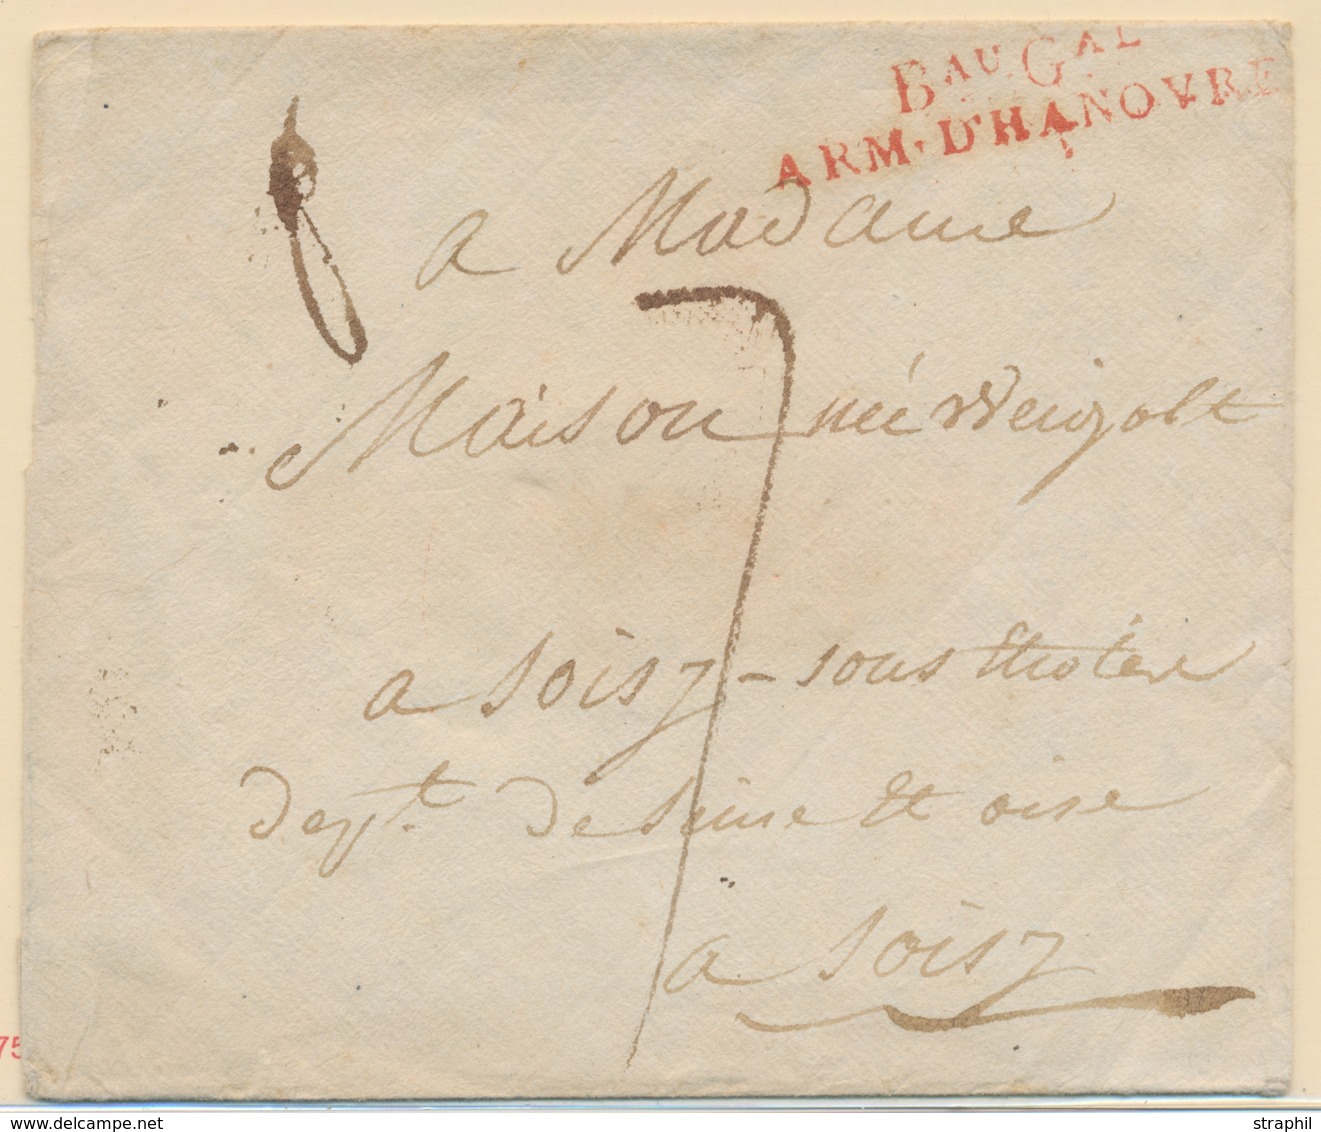 BAU GAL
ARM. D'HANOVRE
a Madame
7
Maison née Weigolt
a Soisy - sous Etiolen
Dept. De Seine et oise
a Soisy
75
www.delcampe.net
straphil